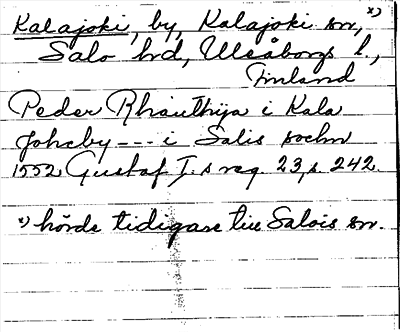 Kalajoki, by, Kalajoki sn, x)
Salo hd, Uleåborgs l.,
Finland
Peder Rhauthia i Kala
Johaby --- i Salis sochn
1552 Gustaf I. s reg. 23, s. 242.
x) hörde tidigare till Salois sn.